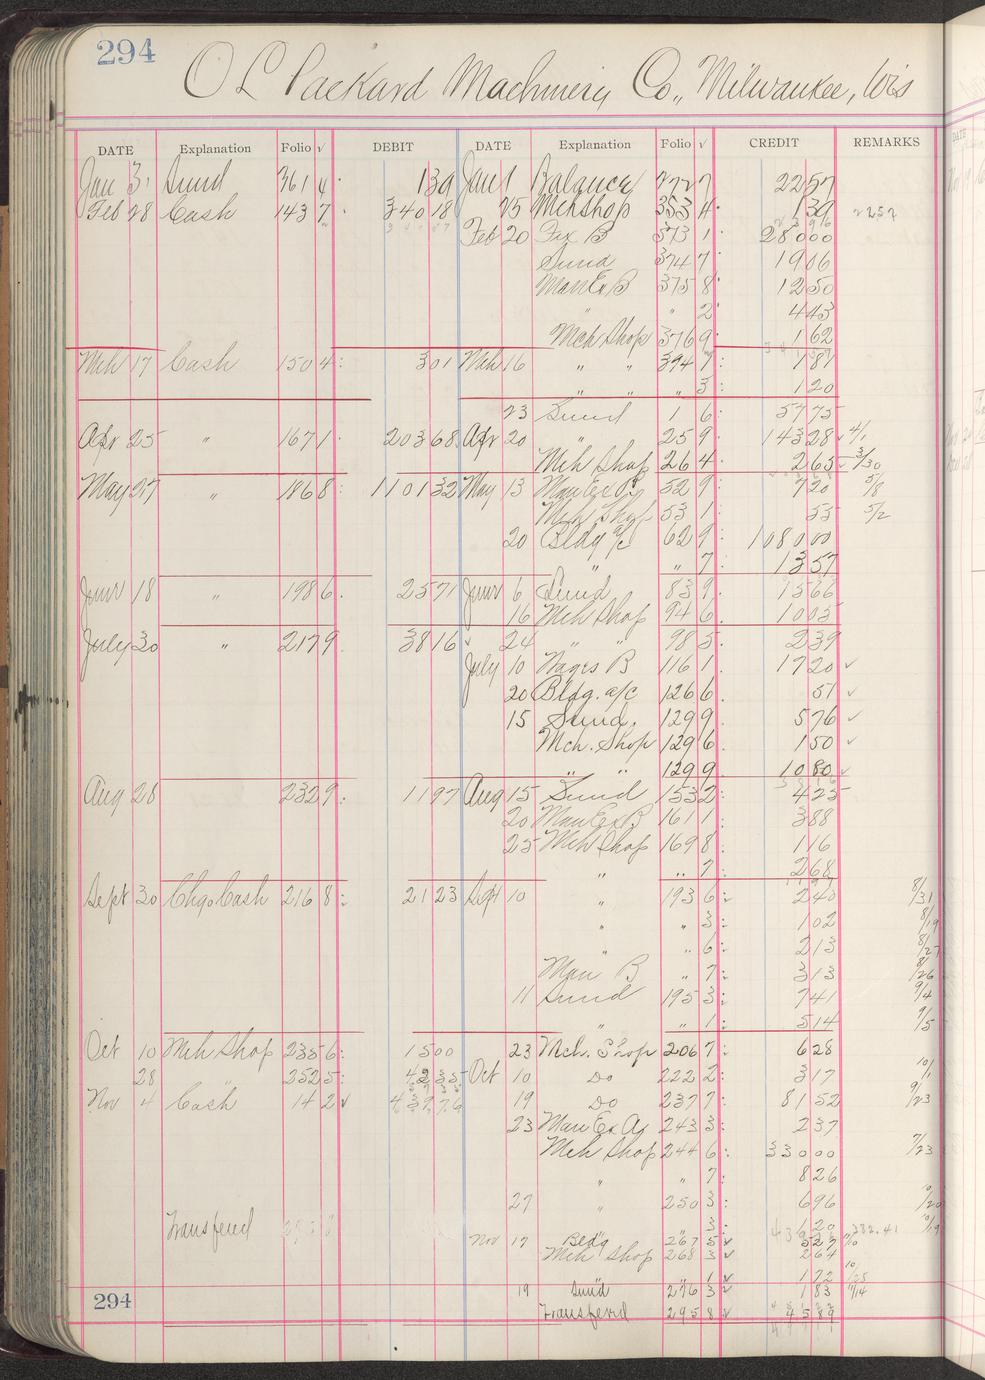 294
O L Packard Machinery Co., Milwaukee, Wis
DATE Explanation Folio √ DEBIT DATE Explanation Folio √ CREDIT REMARKS
Jan 31 Sund 361 4 1 39 Jan 1 Balance 272 7 22 57
Feb 28 Cash 143 7 340 18 25 Mchshop 353 4 1 39 2257
Feb 20 Fix B 373 1 280 00
Sund 374 7 19 06
Man Ex B 375 8 12 50
" " 2 4 43
Mch Shop 376 9 1 62
Mch 17 Cash 150 4 3 01 Mch 16 " " 394 7 1 81
" " " 3 1 20
23 Sund 1 6 57 75
Apr 25 " 167 1 203 68 Apr 20 " 25 9 143 28 4/1
Mch Shop 26 4 2 65 3/30
May 27 " 186 8 1101 32 May 13 Man Ex B 52 9 7 20 5/8
Mch Shop 53 1 55 5/2
20 Bldg a/c 62 9 1080 00
" " 7 13 57
June 18 " 198 6 25 71 June 6 Sund 83 9 15 66
16 Mch Shop 94 6 10 05
July 30 " 217 9 38 16 24 " " 98 5 2 39
July 10 Wages B 116 1 17 20 ✓
20 Bldg. a/c 126 6 51 ✓
15 Sund. 129 9 5 76 ✓
Mch. Shop 129 6 1 50 ✓
" " 129 9 10 80 ✓
Aug 28 232 9 11 97 Aug 15 Sund 153 2 4 25
20 Man Ex B 161 1 3 88
25 Mch Shop 169 8 1 16
" " 7 2 68
Sept 30 Chgo Cash 216 8 21 23 Sept 10 " 193 6 2 40 8/31
" " 3 1 02 8/19
" " 6 2 13 8/27
Man B " 7 3 13 8/26
11 Sund 195 3 7 41 9/4
" " 1 5 14 9/5
Oct 10 Mch Shop 235 6 15 00 23 Mch. Shop 206 7 6 28
28 " 252 5 42 35 Oct 10 Do 222 2 3 17 10/1
Nov 4 Cash 14 2 ✓ 439 76 19 Do 237 7 81 52 9/23
23 Man Ex Ag 243 3 2 37
Mch Shop 244 6 330 00 7/23
" " 7 8 26
27 " 250 3 6 96 10/20
Transferd " 3 1 20 382.41 10/19
Nov 17 Bldg 267 5 ✓ 5 27
Mch Shop 268 3 ✓ 2 64
1 ✓ 1 72
19 Sund 276 3 ✓ 1 83
294
Transferd 295 8 ✓ 45 89